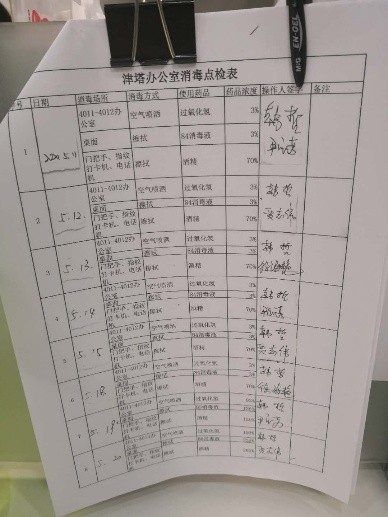 EN-OEL
M/G
津塔办公室消毒点检表
号 日期 消毒场所 消毒方式 使用药品 药品浓度 操作人签字 备注
4011-4012办公室 空气喷洒 过氧化氢 3%
桌面 擦拭 84消毒液 3%
门把手、指纹打卡机、电话机 擦拭 酒精 70%
2 5.12. 4011-4012办公室 空气喷洒 过氧化氢 3% 韩哲
桌面 擦拭 84消毒液 3%
门把手、指纹打卡机、电话机 擦拭 酒精 70%
3 5.13. 4011-4012办公室 空气喷洒 过氧化氢 3% 韩哲
桌面 擦拭 84消毒液 3%
门把手、指纹打卡机、电话机 擦拭 酒精 70%
4 5.14 4011-4012办公室 空气喷洒 过氧化氢 3% 韩哲
桌面 擦拭 84消毒液 3%
门把手、指纹打卡机、电话机 擦拭 酒精 70%
5 5.15 4011-4012办公室 空气喷洒 过氧化氢 3% 韩哲
桌面 擦拭 84消毒液 3%
门把手、指纹打卡机、电话机 擦拭 酒精 70%
6 5.18. 4011-4012办公室 空气喷洒 过氧化氢 3% 韩哲
桌面 擦拭 84消毒液
门把手、指纹打卡机、电话机 擦拭 酒精
7 5.19. 4011-4012办公室 空气喷洒 过氧化氢 韩哲
桌面 擦拭 84消毒液
门把手、指纹打卡机、电话机 擦拭 酒精
8 5.20 4011-4012办公室 空气喷洒 过氧化氢 韩哲
桌面 擦拭 84消毒液
门把手、指纹打卡机、电话机 擦拭 酒精